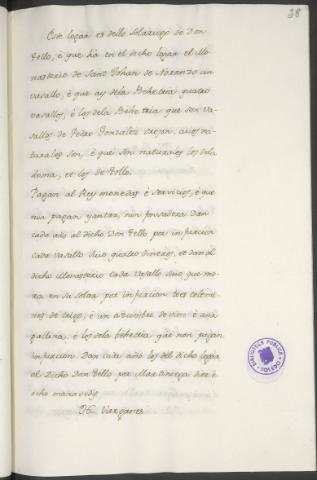 28
Este logar es dello solariego de Don
Tello, è que hà en el dicho logar el Mo-
nasterio de Sant Johan de Naranco un
vasallo, è que ay dela Behetria quatro
vasallos, è los dela Behetria que son va-
sallos de Pedro Gonzalez
turales son, è que son naturales los dela
et los de Tello.
Pagan al Rey monedas è servicios, è que
nin pagan yantar, nin fonsadera Dan
cada año al dicho Don Tello por infurcion
cada vasallo suio quatro dineros, et dan al
dicho Monasterio cada vasallo suio que mo-
ra en su solar por infurcion tres celemi-
nes de trigo, è un azumbre de vino è una
gallina, è los dela behetria que non pagan
infurcion. Dan cada año los del dicho logar
al Dicho Don Tello por Martiniega diez è
ocho maravedis.
BIBLIOTECA PUBLICA